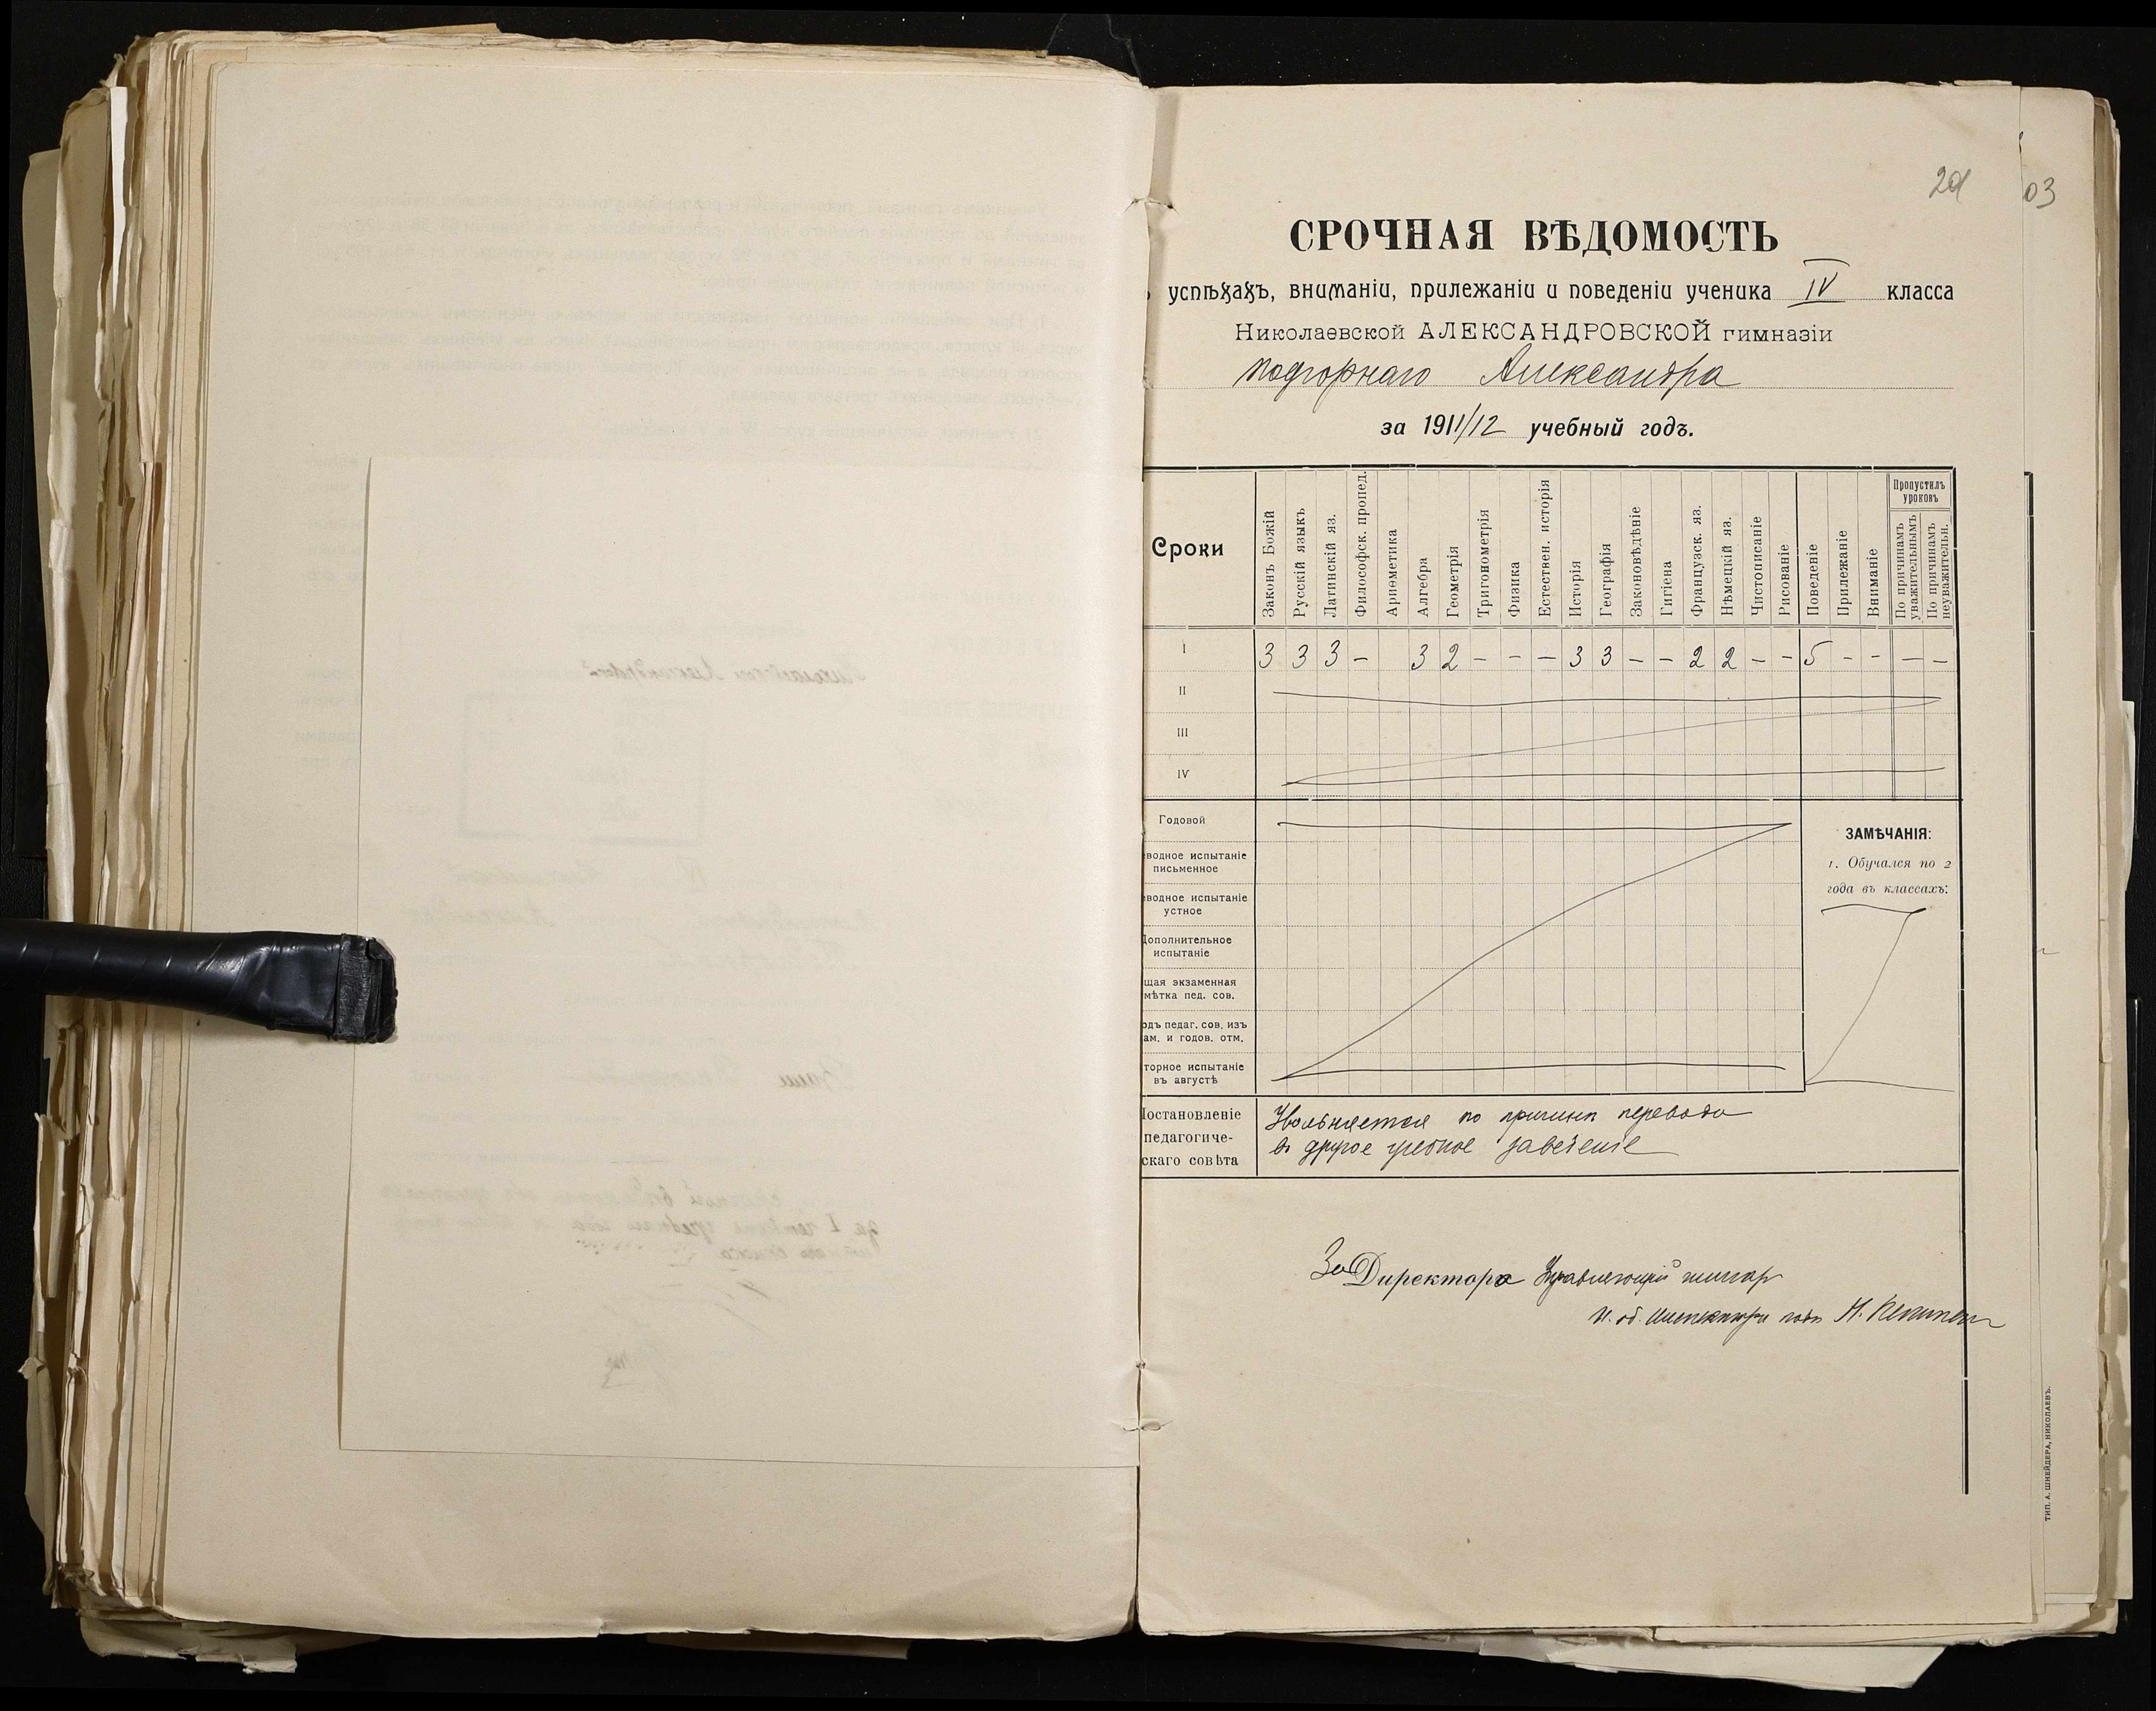 03
СРОЧНАЯ ВѢДОМОСТЬ
успѣхахъ, вниманіи, прилежаніи и поведеніи ученика IV класса
Николаевской АЛЕКСАНДРОВСКОЙ гимназіи
Подгорнаго Александра
за 1911/12 учебный годъ.
Сроки
Законъ Божій
Русскій языкъ
Латинскій яз.
Философск. пропед.
Ариѳметика
Алгебра
Геометрія
Тригонометрія
Физика
Естествен. исторія
Исторія
Географія
Законовѣдѣніе
Гигіена
Французск. яз.
Нѣмецкій яз.
Чистописаніе
Рисованіе
Поведеніе
Прилежаніе
Вниманіе
Пропустилъ
уроковъ
По причинамъ
уважительнымъ
По причинамъ
неуважительн.
I 3 3 3 – 3 2 – – – 3 3 – – 2 2 – – 5 – – – –
II
III
IV
Годовой
водное испытаніе
письменное
водное испытаніе
устное
Дополнительное
испытаніе
щая экзаменная
мѣтка пед. сов.
одъ педаг. сов. изъ
ам. и годов. отм.
торное испытаніе
въ августѣ
ЗАМѢЧАНІЯ:
1. Обучался по 2
года въ классахъ:
Постановленіе
педагогиче-
скаго совѣта
Увольняется по причинѣ перевода
въ другое учебное заведеніе
За Директора
И. об. Инспектора
ТИП. А. ШНЕЙДЕРА, НИКОЛАЕВЪ.